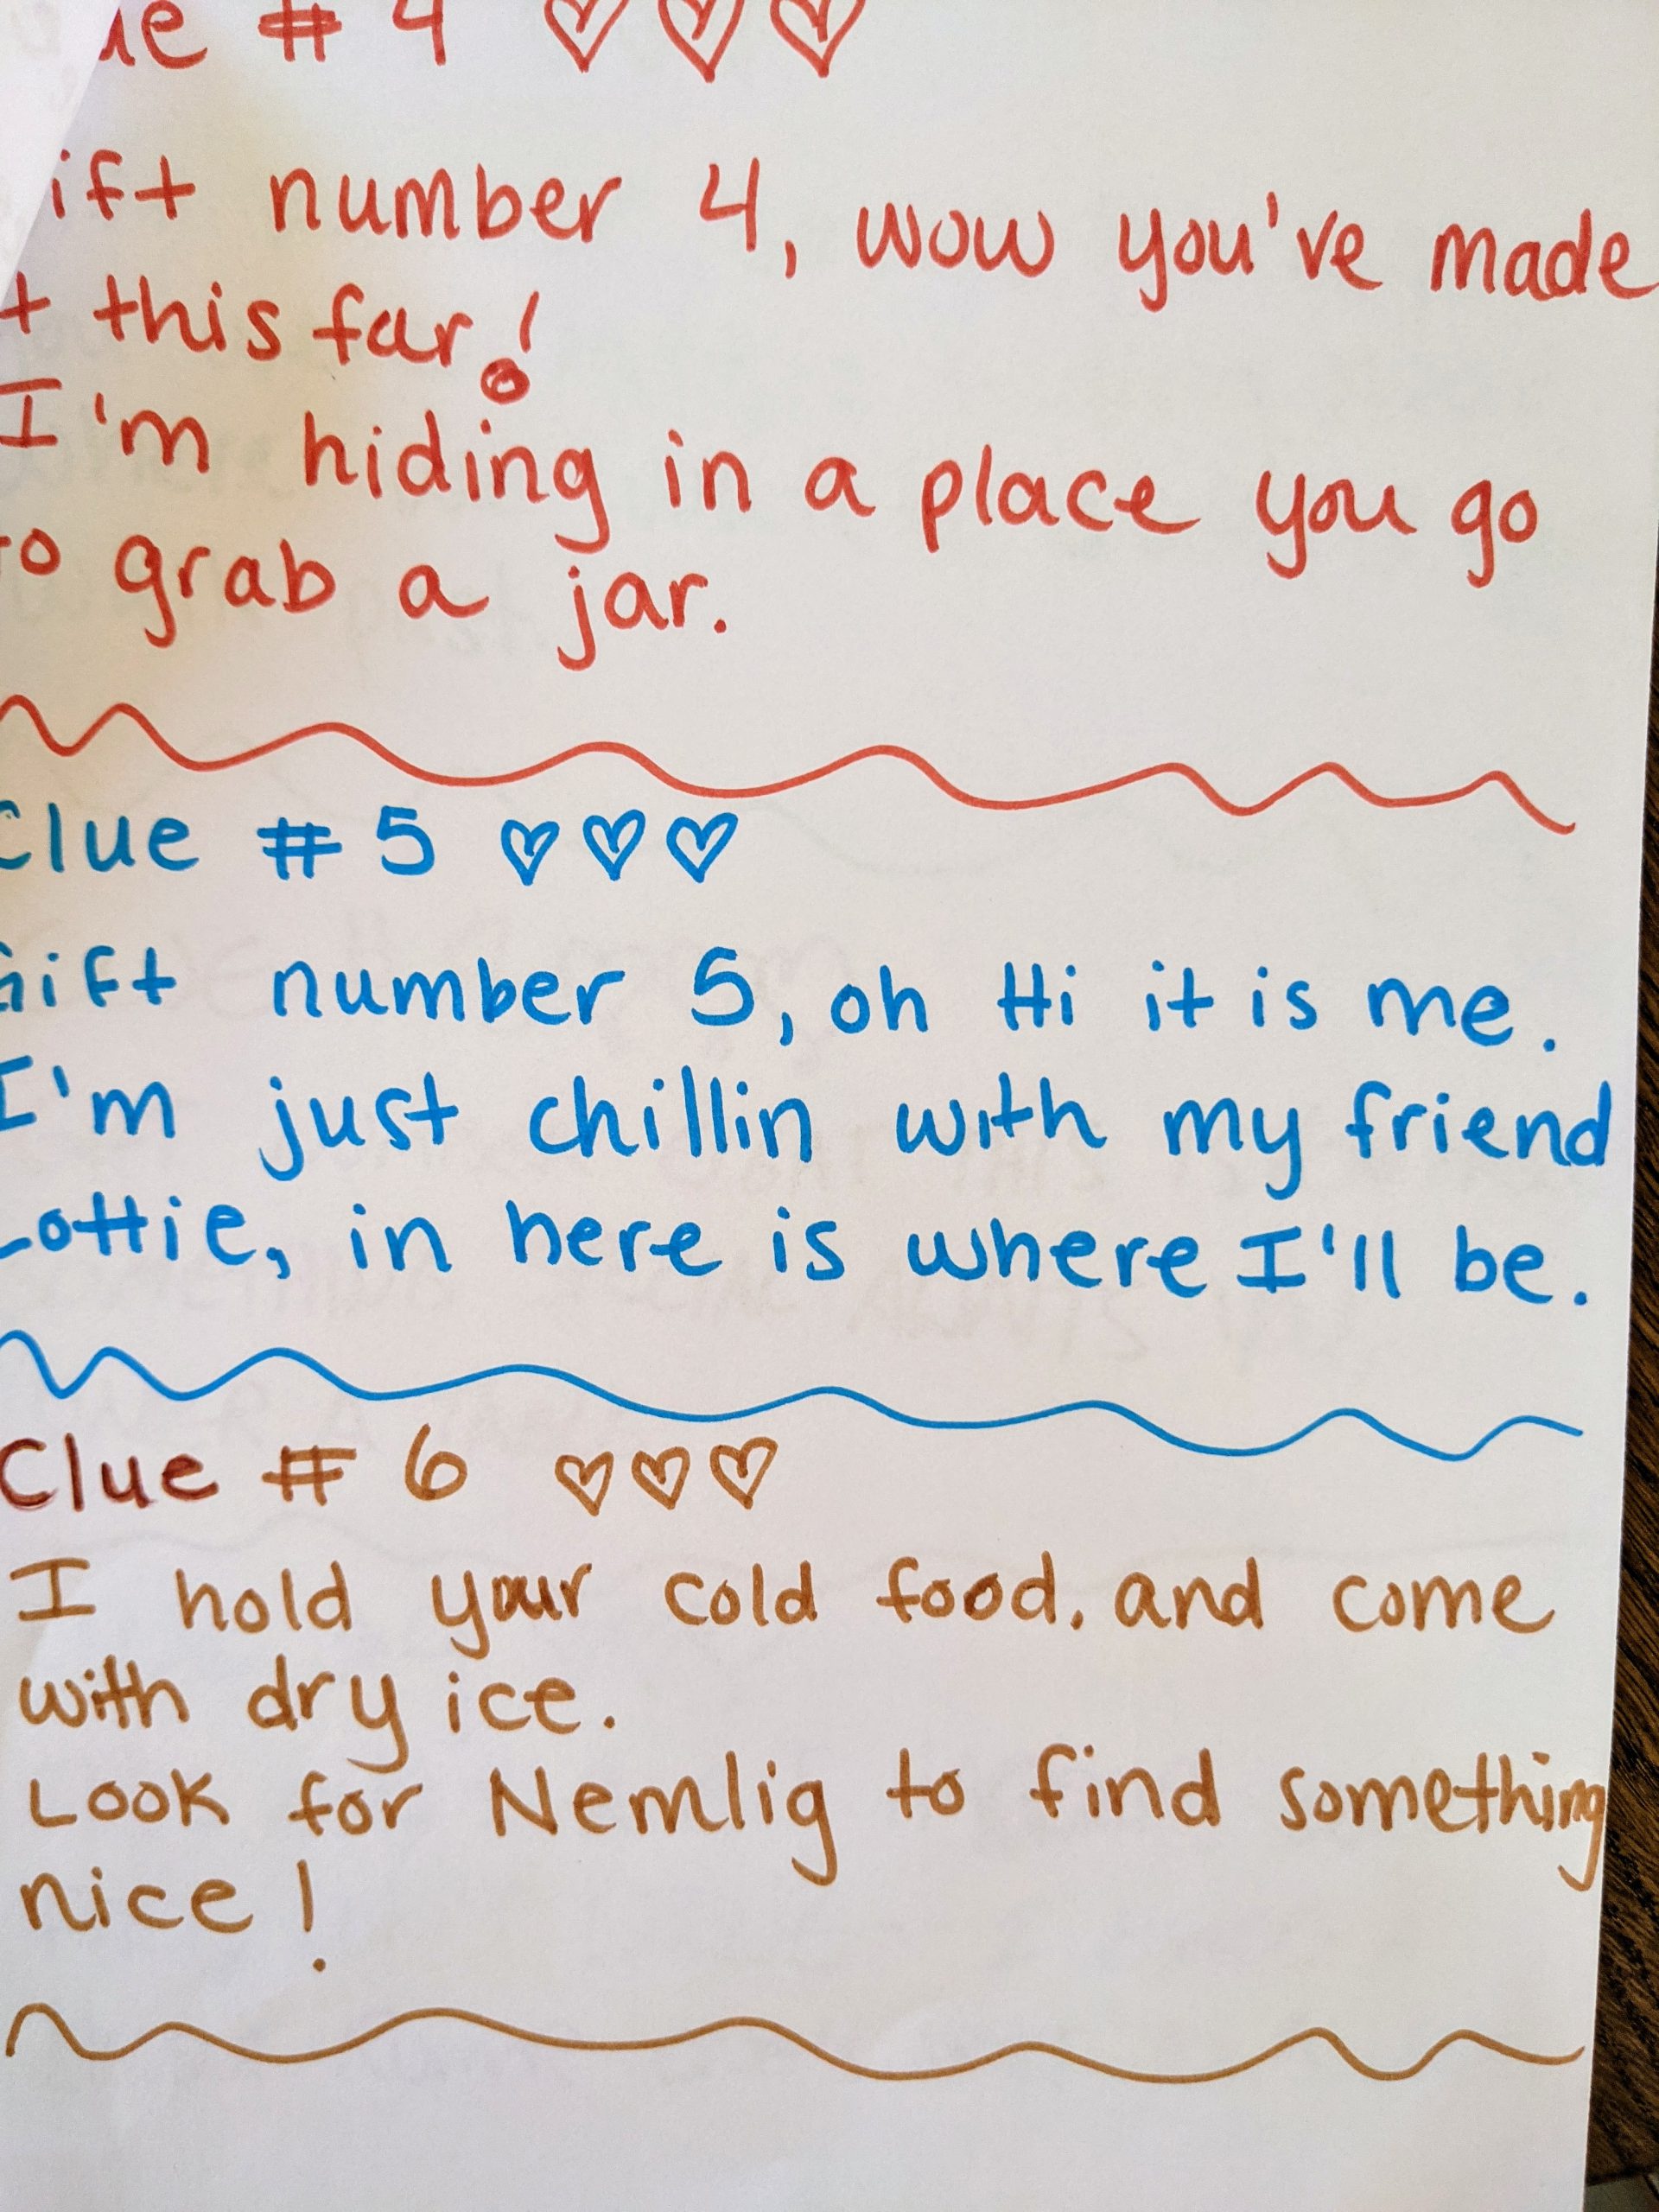 ue # 4 ♡ ♡ ♡
ift number 4, wow you've made
t this far!
I'm hiding in a place you go
to grab a jar.
Clue # 5 ♡ ♡ ♡
Gift number 5, oh Hi it is me.
I'm just chillin with my friend
Lottie, in here is where I'll be.
Clue # 6 ♡ ♡ ♡
I hold your cold food. and come
with dry ice.
Look for Nemlig to find something
nice!